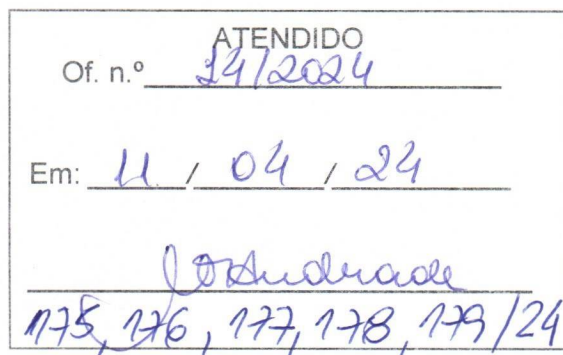 ATENDIDO
Of. n.º 14/2024
Em: 11 / 04 / 24
Andrade
175, 176, 177, 178, 179/24